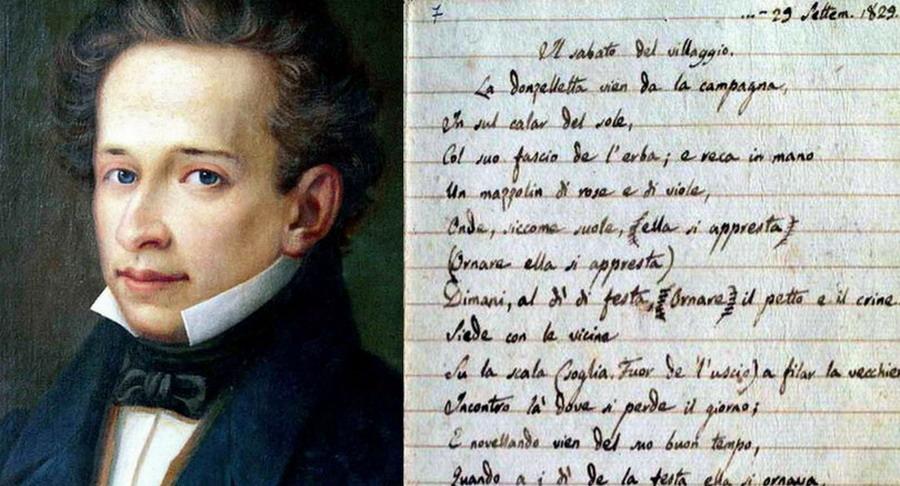 7
... - 29 Settem. 1829.
Il sabato del villaggio.
La donzelletta vien da la campagna,
In sul calar del sole,
Col suo fascio de l'erba; e reca in mano
Un mazzolin di rose e di viole,
Onde, siccome suole, ella si appresta
(Ornare ella si appresta)
Dimani, al dì di festa, Ornare il petto e il crine.
Siede con le vicine
Su la scala (soglia. Fuor de l'uscio) a filar la vecchier
Incontro là dove si perde il giorno;
E novellando vien del suo buon tempo,
Quando a i dì de la festa ella si ornava,